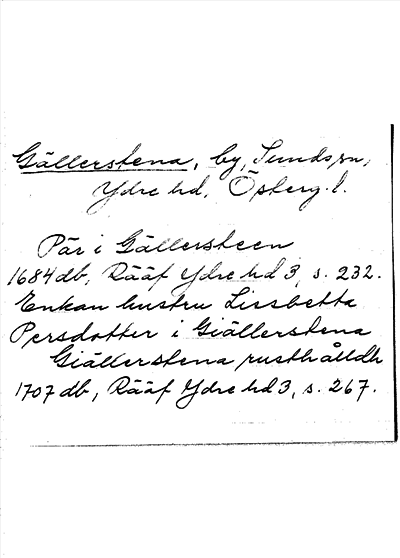 Gällerstena, by, Sunds sn,
Ydre hd, Östergl.
Pär i Gällersteen
1684 db, Rääf Ydre hd 3, s. 232.
Enkan hustru Lissbetta
Persdotter i Giällerstena
Giällerstena rusthålldh
1707 db, Rääf Ydre hd 3, s. 267.